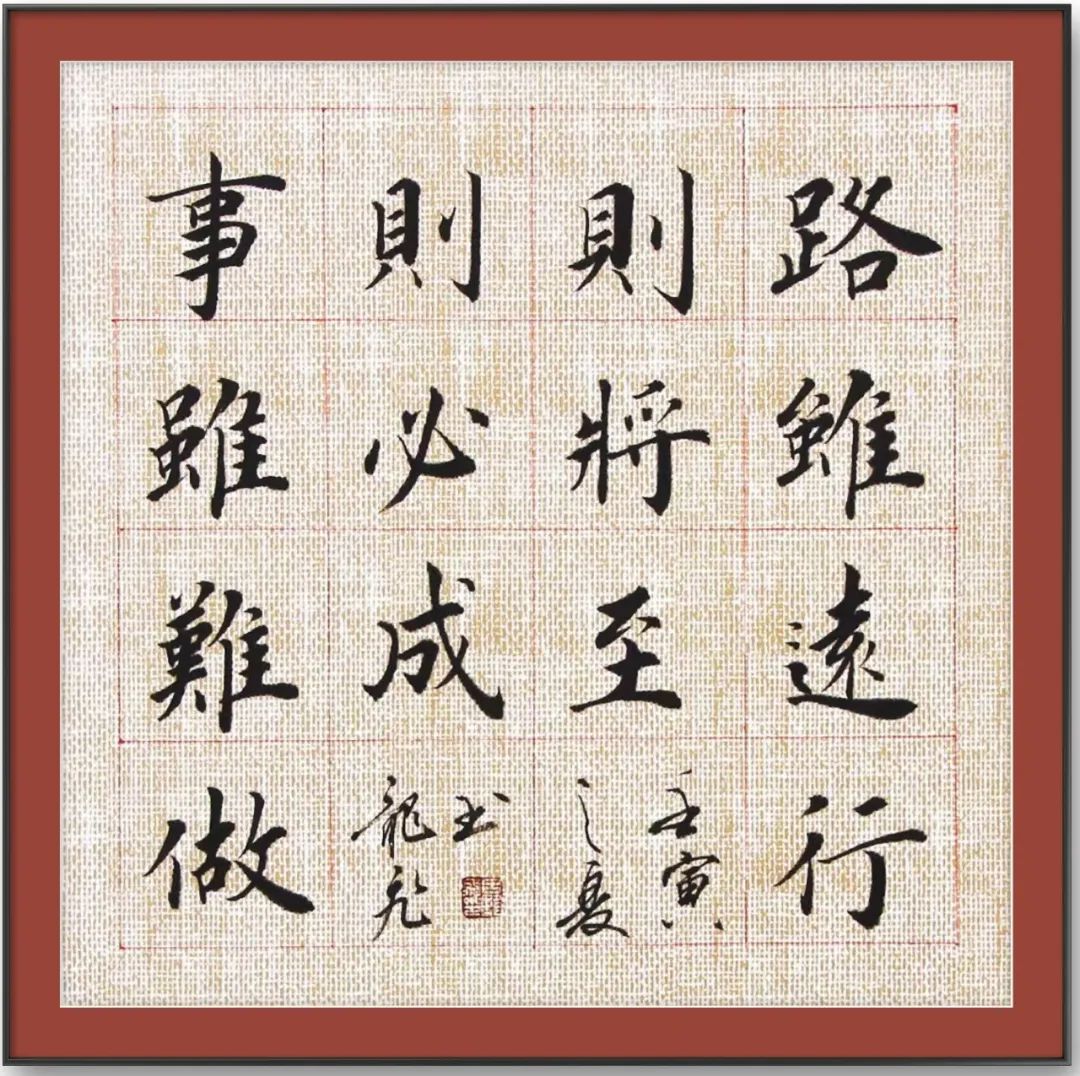 路雖遠行
則將至
事雖難做
則必成
壬寅
之夏
玉
龍